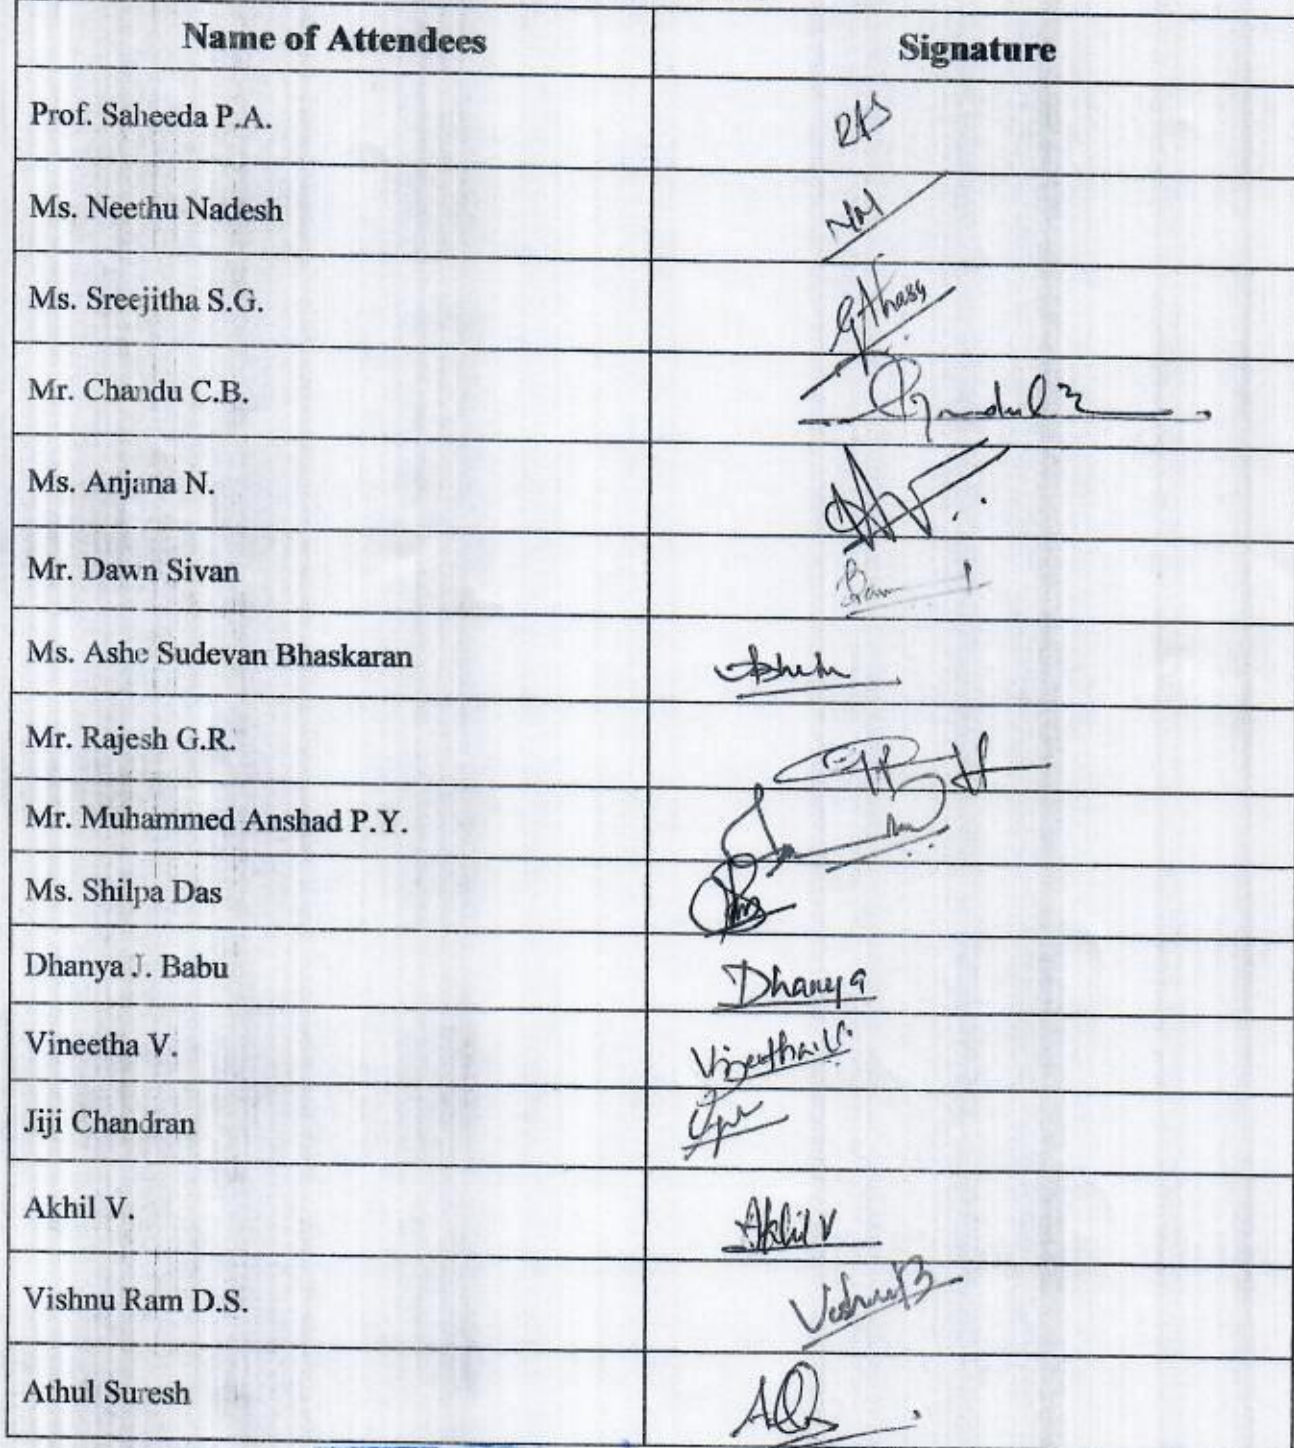 Name of Attendees Signature
Prof. Saheeda P.A.
Ms. Neethu Nadesh NN
Ms. Sreejitha S.G.
Mr. Chandu C.B.
Ms. Anjana N.
Mr. Dawn Sivan
Ms. Ashe Sudevan Bhaskaran
Mr. Rajesh G.R.
Mr. Muhammed Anshad P.Y.
Ms. Shilpa Das
Dhanya J. Babu Dhanya
Vineetha V. Vineetha.V.
Jiji Chandran
Akhil V. Akhil V
Vishnu Ram D.S.
Athul Suresh